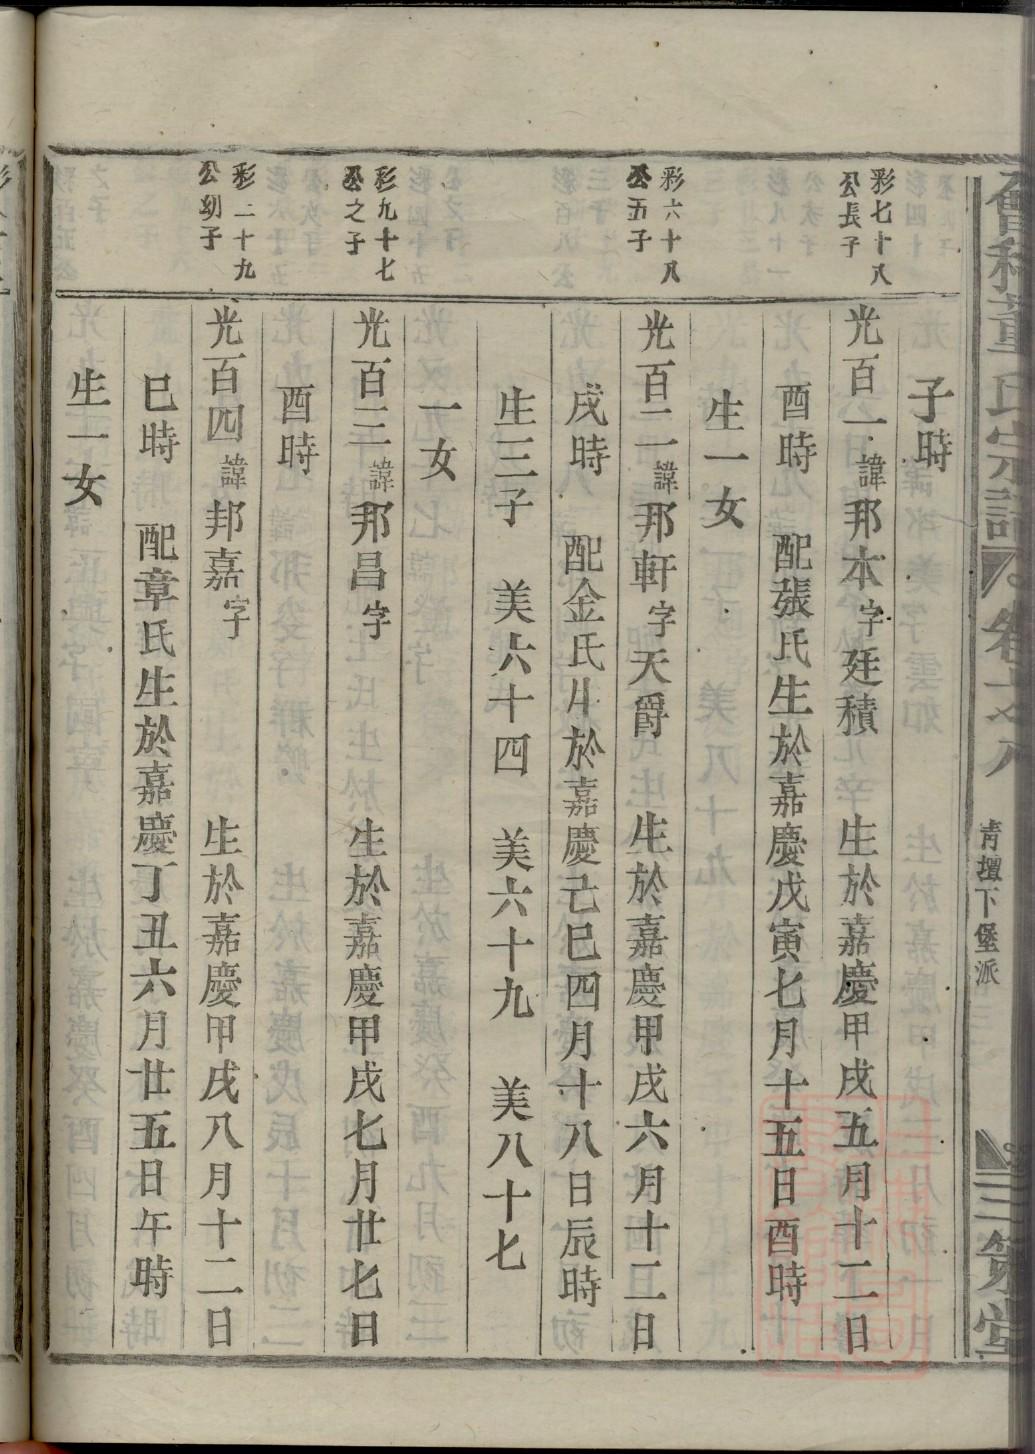 會稽董氏宗譜 卷十八 青壇下堡派 三策堂
子時
彩七十八
公長子
光百一 諱邦本字廷積 生於嘉慶甲戌五月十二日
酉時 配張氏生於嘉慶戊寅七月十五日酉時
生一女
彩六十八
公五子
光百二 諱邦軒字天爵 生於嘉慶甲戌六月十二日
戌時 配金氏生於嘉慶己巳四月十八日辰時
生三子 美六十四 美六十九 美八十七
一女
彩九十七
公之子
光百三 諱邦昌字 生於嘉慶甲戌七月廿七日
酉時
彩二十九
公幼子
光百四 諱邦嘉字 生於嘉慶甲戌八月十二日
巳時 配章氏生於嘉慶丁丑六月廿五日午時
生一女